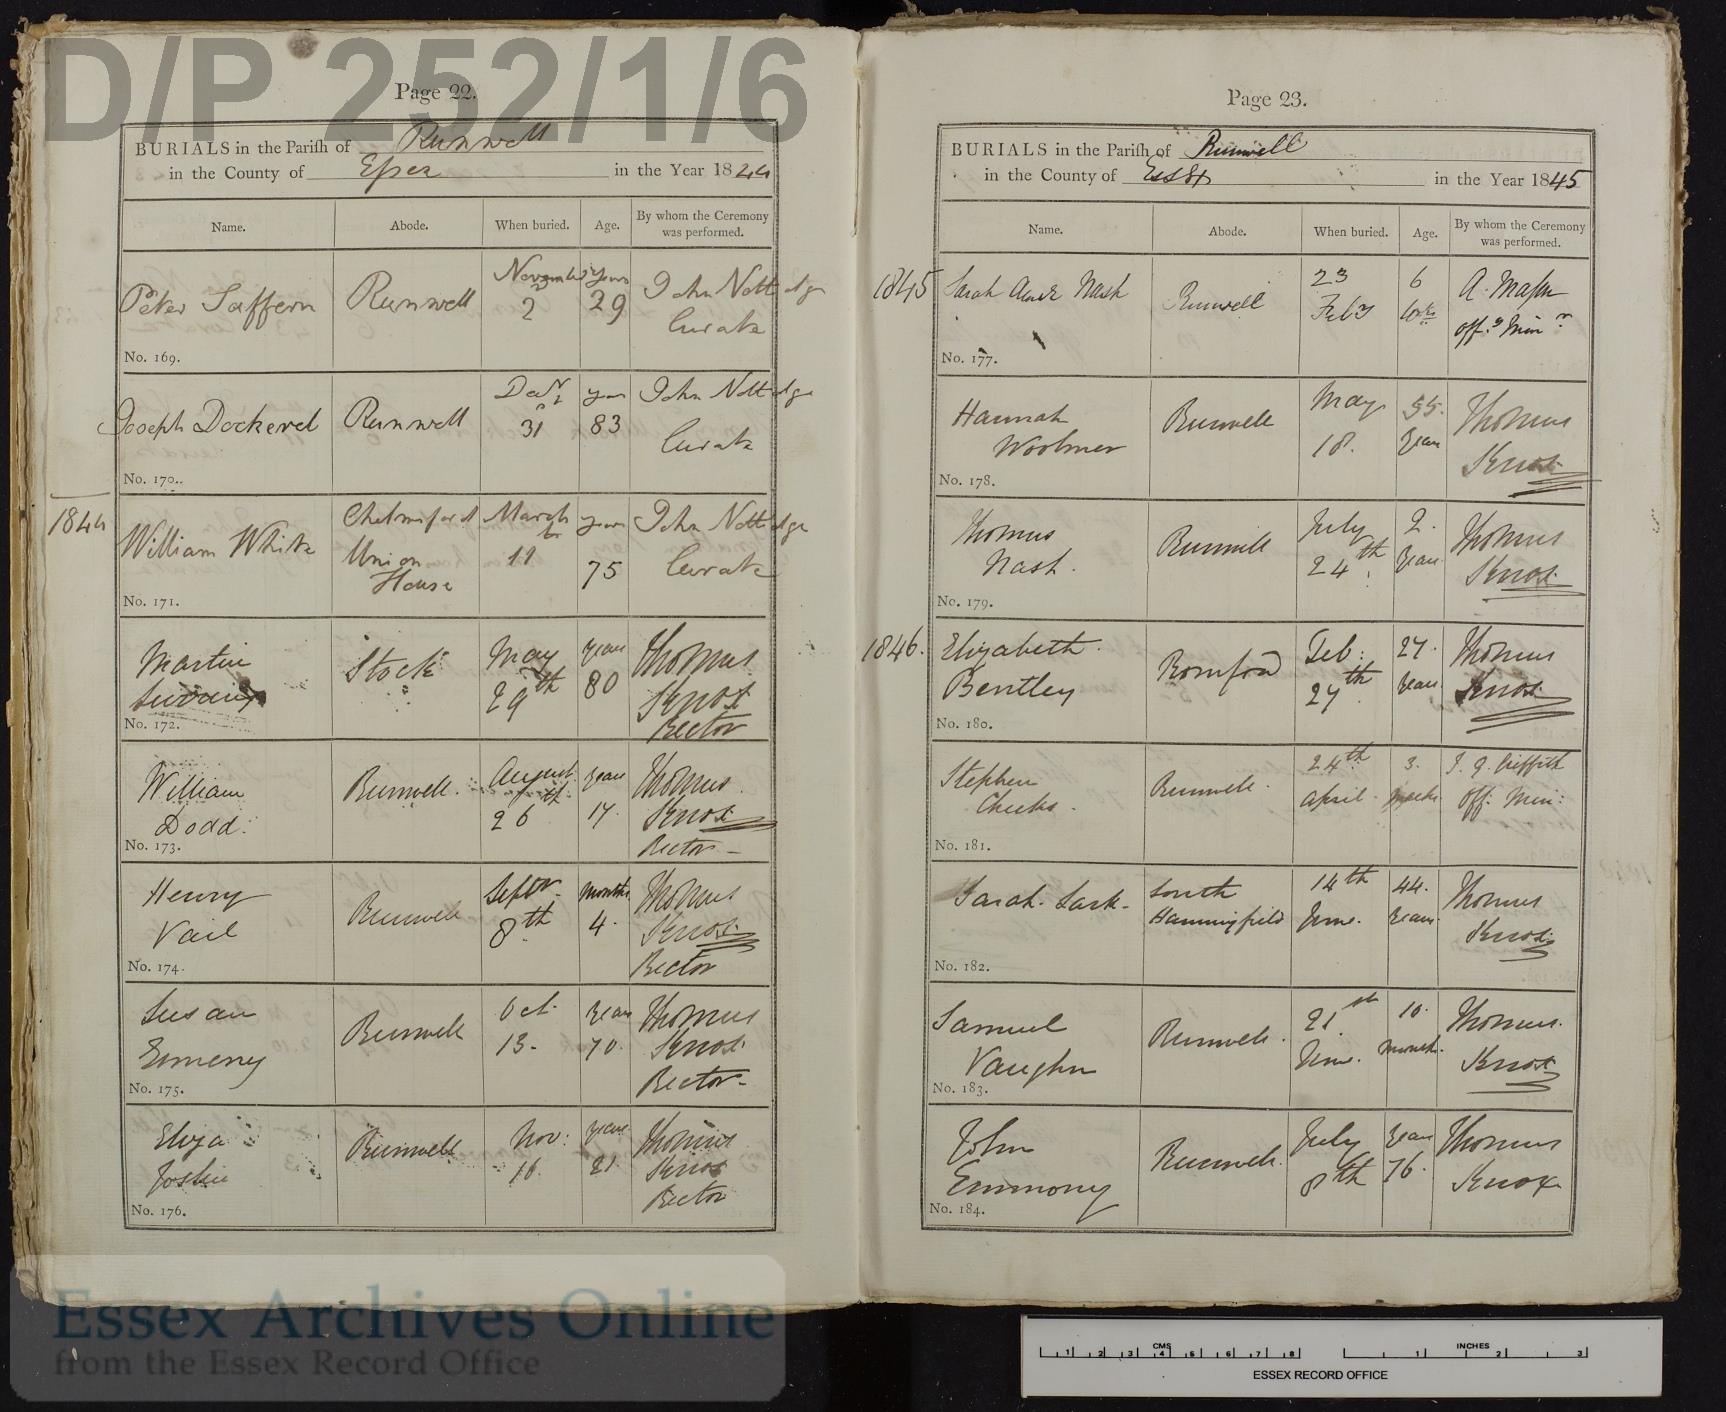 D/P 252/1/6
Page 22.
BURIALS in the Parish of Runwell
in the County of Essex in the Year 1844
Name. Abode. When buried. Age. By whom the Ceremony was performed.
Peter Saffern Runwell November 2 years 29 John Nottidge Curate
No. 169.
Joseph Dockerel Runwell Decr 31 years 83 John Nottidge Curate
No. 170.
1844
William White Chelmsford Union House March 11 years 75 John Nottidge Curate
No. 171.
Martin Stock May 29th years 80 Thomas Knox Rector
No. 172.
William Dodd. Runwell. August 26th years 17. Thomas Knox Rector
No. 173.
Henry Vail Runwell Septr 8th months 4. Thomas Knox Rector
No. 174.
Susan Emmeny Runwell Oct. 13 years 70. Thomas Knox Rector
No. 175.
Eliza Joslin Runwell Nov: 16 years 21 Thomas Knox Rector
No. 176.
Page 23.
BURIALS in the Parish of Runwell
in the County of Essex in the Year 1845
Name. Abode. When buried. Age. By whom the Ceremony was performed.
1845
Sarah Nash Runwell 23 Feby 6 A. Mason Off.g Min.r
No. 177.
Hannah Woolmer Runwell May 18. 55. years Thomas Knox
No. 178.
Thomas Nash. Runwell July 24th 2. years Thomas Knox
No. 179.
1846.
Elizabeth Bentley Romford Feb: 27th 27. years Thomas Knox
No. 180.
Stephen Cheeks. Runwell. 24th April 3. weeks J. G. Griffith Off: Min:
No. 181.
Sarah Lark South Hanningfield 14th June. 44. years Thomas Knox
No. 182.
Samuel Vaughn Runwell. 21st June. 10. months. Thomas Knox
No. 183.
John Emmony Runwell July 8th years 76. Thomas Knox
No. 184.
Essex Archives Online
from the Essex Record Office
CMS
1 2 3 4 5 6 7 8
INCHES
1 2 3
ESSEX RECORD OFFICE